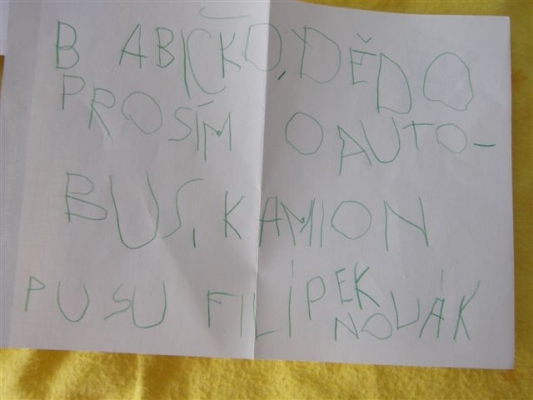 BABIČKO, DĚDO
PROSÍM O AUTO-
BUS, KAMION
PUSU FILÍPEK
NOVÁK